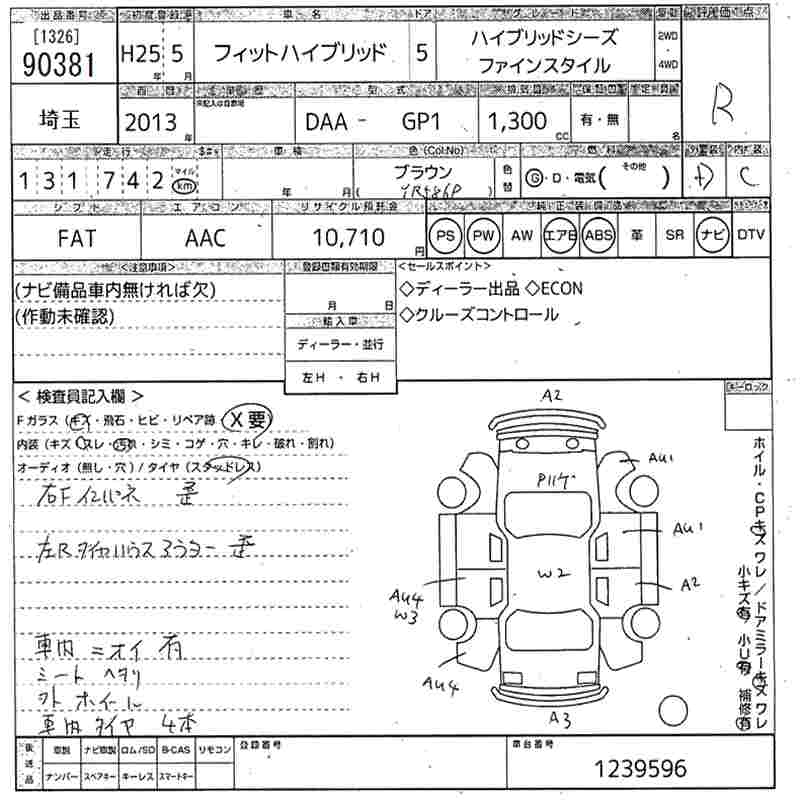 出品番号 初度登録年 車名 ドア グレード 型式 評価点
[1326]
90381 H25年 5月 フィットハイブリッド 5 ハイブリッドシーズ
ファインスタイル 2WD・4WD R
西暦 車歴 型式 排気量
埼玉 2013年 DAA - GP1 1,300CC 有・無 名
※記入は自家用
走行 車検 色(Col:No) 燃料 外装 内装
131742 マイル km 年 月 ブラウン 色替 G・D・電気( その他 ) D C
(YR586P)
シフト エアコン リサイクル預託金 純正装備品
FAT AAC 10,710円 PS PW AW エアB ABS 革 SR ナビ DTV
<注意事項> 登録書類有効期限 <セールスポイント>
(ナビ備品車内無ければ欠) ◇ディーラー出品 ◇ECON
(作動未確認) 月 日 ◇クルーズコントロール
輸入車
ディーラー・並行
左H・右H
<検査員記入欄> キーロック
Fガラス(キズ・飛石・ヒビ・リペア跡 X要)
内装(キズ スレ・汚れ・シミ・コゲ・穴・キレ・破れ・割れ)
オーディオ(無し・穴)/タイヤ(スタッドレス)
右Fインパネ 歪
左Rタイヤハウス アウター 歪
車内ニオイ有
シートヘタリ
外ホイール
車内タイヤ4本
A2
AU1
P1ケ
AU1
W2
A2
AU4
W3
AU4
A3
ホイル・CPキズ ワレ/ドアミラーキズ ワレ
小キズ有 小U有 補修有
後送品 車説 ナビ車説 ロム/SD B-CAS リモコン 登録番号 車台番号
ナンバー スペアキー キーレス スマートキー 1239596